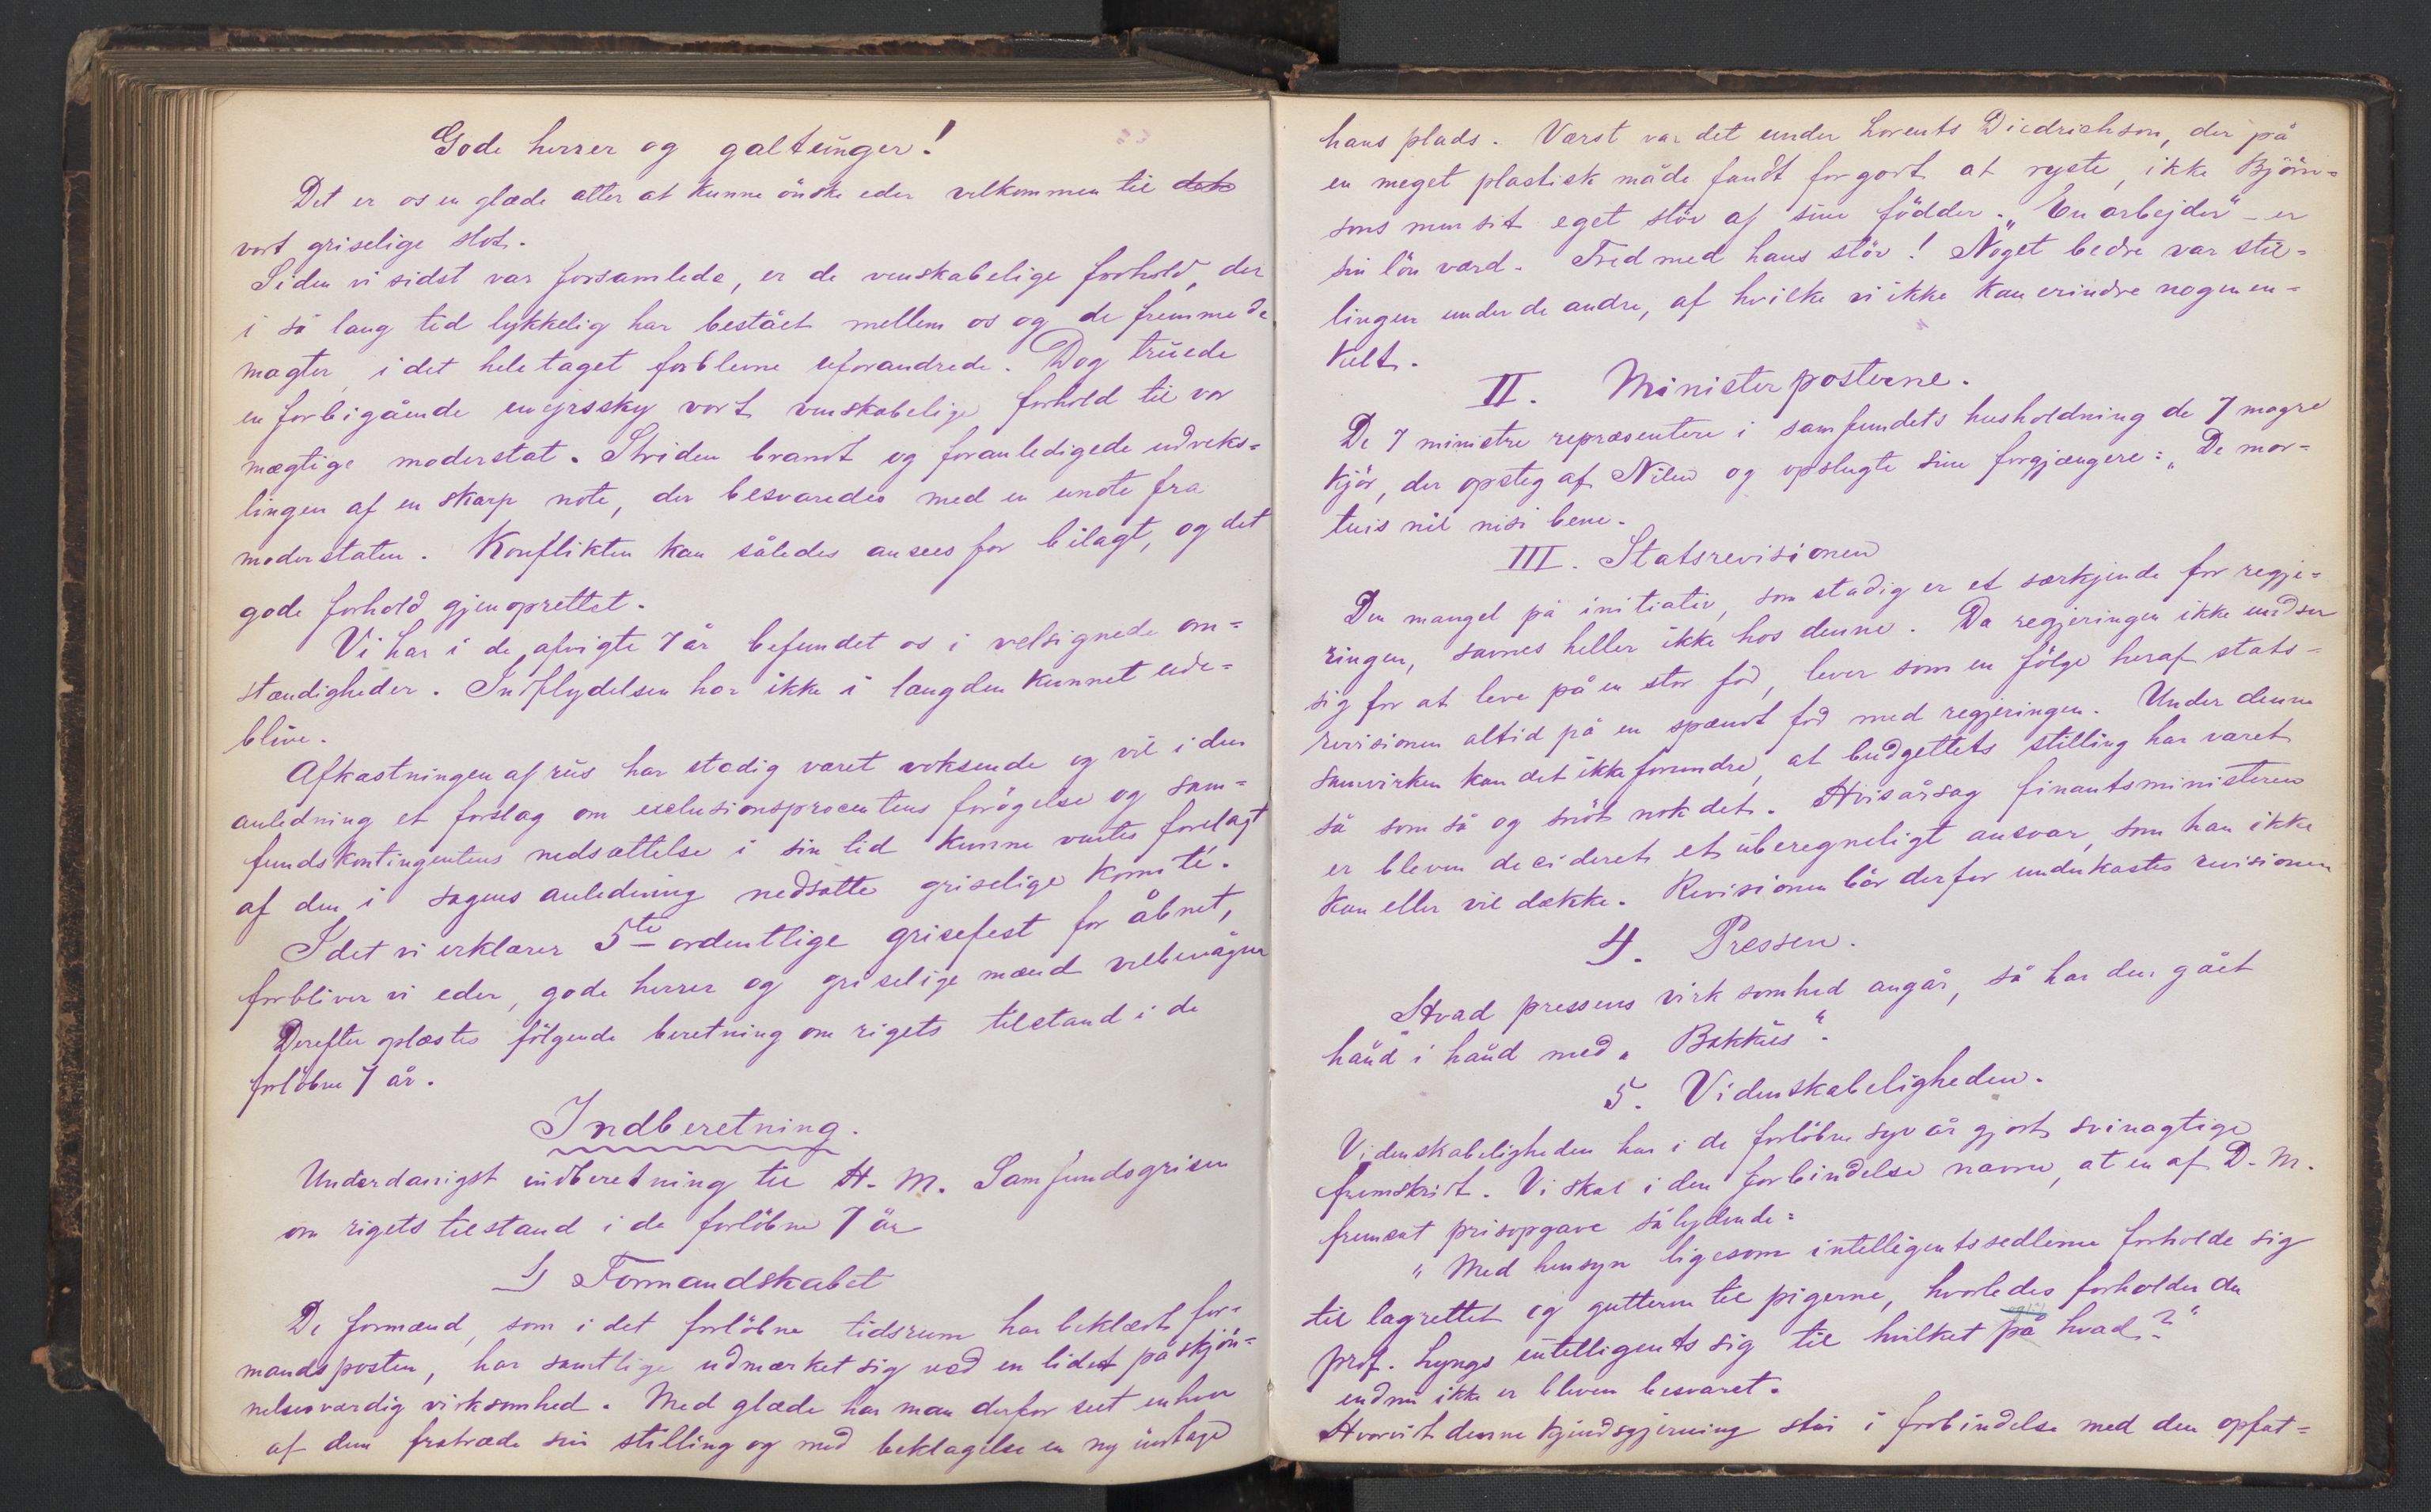 Gode herrer og galtunger!
Det er os en glæde atter at kunne önske eder velkommen til dets
vort griselige slot.
Siden vi sidst var forsamlede, er de venskabelige forhold, der
i så lang tid lykkelig har bestået mellem os og de fremmede
magter i det hele taget forblevne uforandrede. Dog truede
en forbigående uvejrssky vort venskabelige forhold til vor
mægtige moderstat. Striden brandt og foranledigede udveks=
lingen af en skarp note, der besvaredes med en unote fra
moderstaten. Konflikten kan således ansees for bilagt, og det
gode forhold gjenoprettet.
Vi har i de afvigte 7 år befundet os i velsignede om=
stændigheder. Indflydelsen har ikke i længden kunnet ude=
blive.
Afkastningen af rus har stadig været voksende og vil i den
anledning et forslag om exclusionsprocentens forögelse og sam=
fundskontingentens nedsættelse i sin tid kunne ventes forelagt
af den i sagens anledning nedsatte griselige komité.
Idet vi erklærer 5te ordentlige grisefest for åbnet,
forbliver vi eder, gode herrer og griselige mænd velbevågne
Derefter oplæstes fölgende beretning om rigets tilstand i de
forløbne 7 år.
Indberetning.
Underdanigst indberetning til H. M. Samfundsgrisen
om rigets tilstand i de forlöbne 7 år
1) Formandskabet
De formænd, som i det forlöbne tidsrum har beklædt for=
mandsposten, har samtlige udmærket sig ved en lidet påskjön=
nelsesværdig virksomhed. Med glæde har man derfor seet enhver
af dem fratræde sin stilling og med beklagelse en ny indtage
hans plads. Værst var det under Lorents Diedrichson, der på
en meget plastisk måde fandt forgodt at ryste, ikke Björn=
sons men sit eget stöv af sine födder. „En arbejder" – er
sin lön værd. Fred med hans stöv! Noget bedre var stil=
lingen under de andre, af hvilke vi ikke kan erindre nogen en=
kelt.
II. Ministerposterne.
De 7 ministre repræsentere i samfundets husholdning de 7 magre
kjör, der opsteg af Nilen og opslugte sine forgjængere: „De mor=
tuis nil nisi bene.
III. Statsrevisionen
Den mangel på initiativ, som stadig er et særkjende for regje=
ringen, savnes heller ikke hos denne. Da regjeringen ikke undser
sig for at leve på en stor fod, lever som en fölge heraf stats=
revisionen altid på en spændt fod med regjeringen. Under denne
samvirken kan det ikke forundre, at budgettets stilling har været
så som så og snöt nok det. Hvisårsag finantsministeren
er bleven decideret et uberegneligt ansvar, som han ikke
kan eller vil dække. Revisionen bör derfor underkastes revisionen
4. Pressen.
Hvad pressens virksomhed angår, så har den gået
hånd i hånd med „Bakkus".
5. Videnskabeligheden.
Videnskabeligheden har i de forlöbne syv år gjort svinagtige
fremskridt. Vi skal i den forbindelse nævne, at en af D. M.
fremsat prisopgave sålydende:
„Med hensyn ligesom intelligentssedlerne forholde sig
til lagrettet og gutterne til pigerne, hvorledes forholder da
prof. Lyngs intelligents sig til hvilket på hvad?"
endnu ikke er bleven besvaret.
Hvorvidt denne kjendsgjerning står i forbindelse med den opfat=